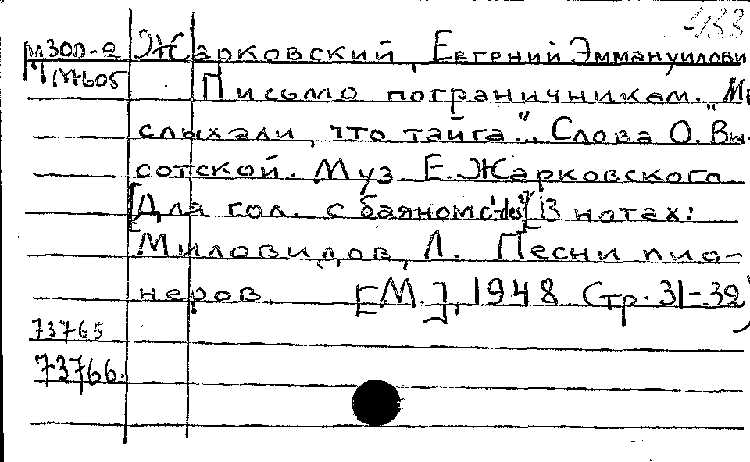 433
М300-2 Жарковский, Евгений Эммануилови
М605 Письмо пограничникам. „Мы
слыхали, что тайга". Слова О. Вы-
сотской. Муз. Е. Жарковского
[Для гол. с баяном c¹-des²] В нотах:
Миловидов, Л. Песни пио-
неров. [М.], 1948 (тр. 31-32)
73765
73766.